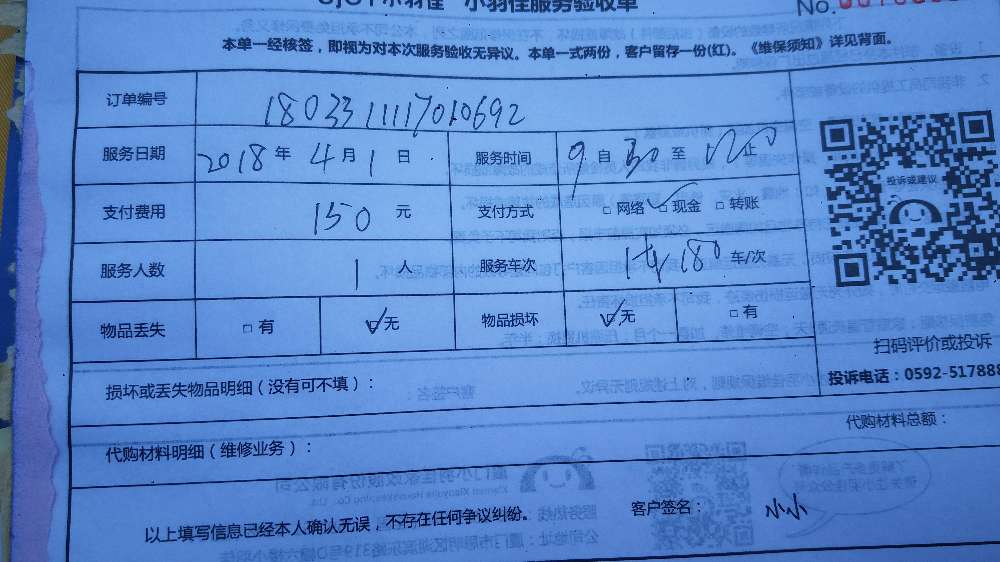 小羽佳服务验收单
No.
本单一经核签，即视为对本次服务验收无异议。本单一式两份，客户留存一份(红)。《维保须知》详见背面。
订单编号 1803311117010692
服务日期 2018年4月1日 服务时间 9自30至 止
支付费用 150元 支付方式 □网络 □现金 □转账
服务人数 1人 服务车次 180 车/次
物品丢失 □有 □无 物品损坏 □无 □有
投诉或建议
扫码评价或投诉
投诉电话：0592-517888
损坏或丢失物品明细（没有可不填）：
代购材料明细（维修业务）： 代购材料总额：
以上填写信息已经本人确认无误，不存在任何争议纠纷。 客户签名： 小小